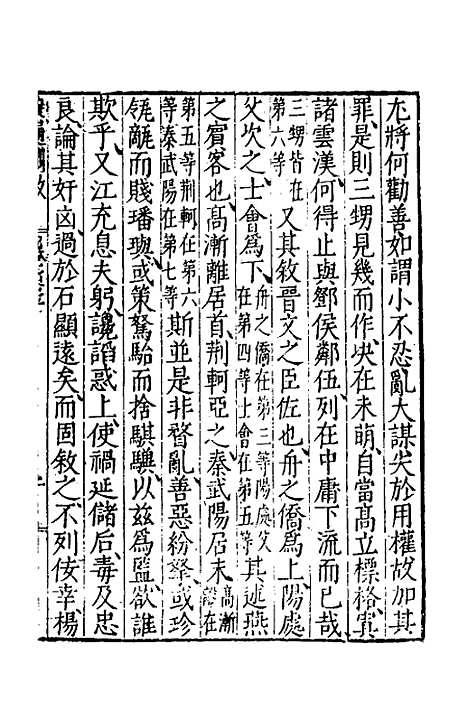 尢將何勸善如謂小不忍亂大謀失於用權故加其
罪是則三甥見幾而作決在未萌自當高立標格寘
諸雲漢何得止與鄧侯鄰伍列在中庸下流而已哉
三甥皆在第六等又其敘晉文之臣佐也舟之僑爲上陽處
父次之士會爲下舟之僑在第三等陽處父在第四等士會在第五等其述燕
之賓客也高漸離居首荆軻亞之秦武陽居末高漸離在
第五等荆軻在第六等秦武陽在第七等斯並是非瞀亂善惡紛拏或珍
瓴甋而賤璠璵或策駑駘而捨騏驥以兹爲監欲誰
欺乎又江充息夫躬讒謟惑上使禍延儲后毒及忠
良論其奸凶過於石顯遠矣而固敘之不列佞幸楊